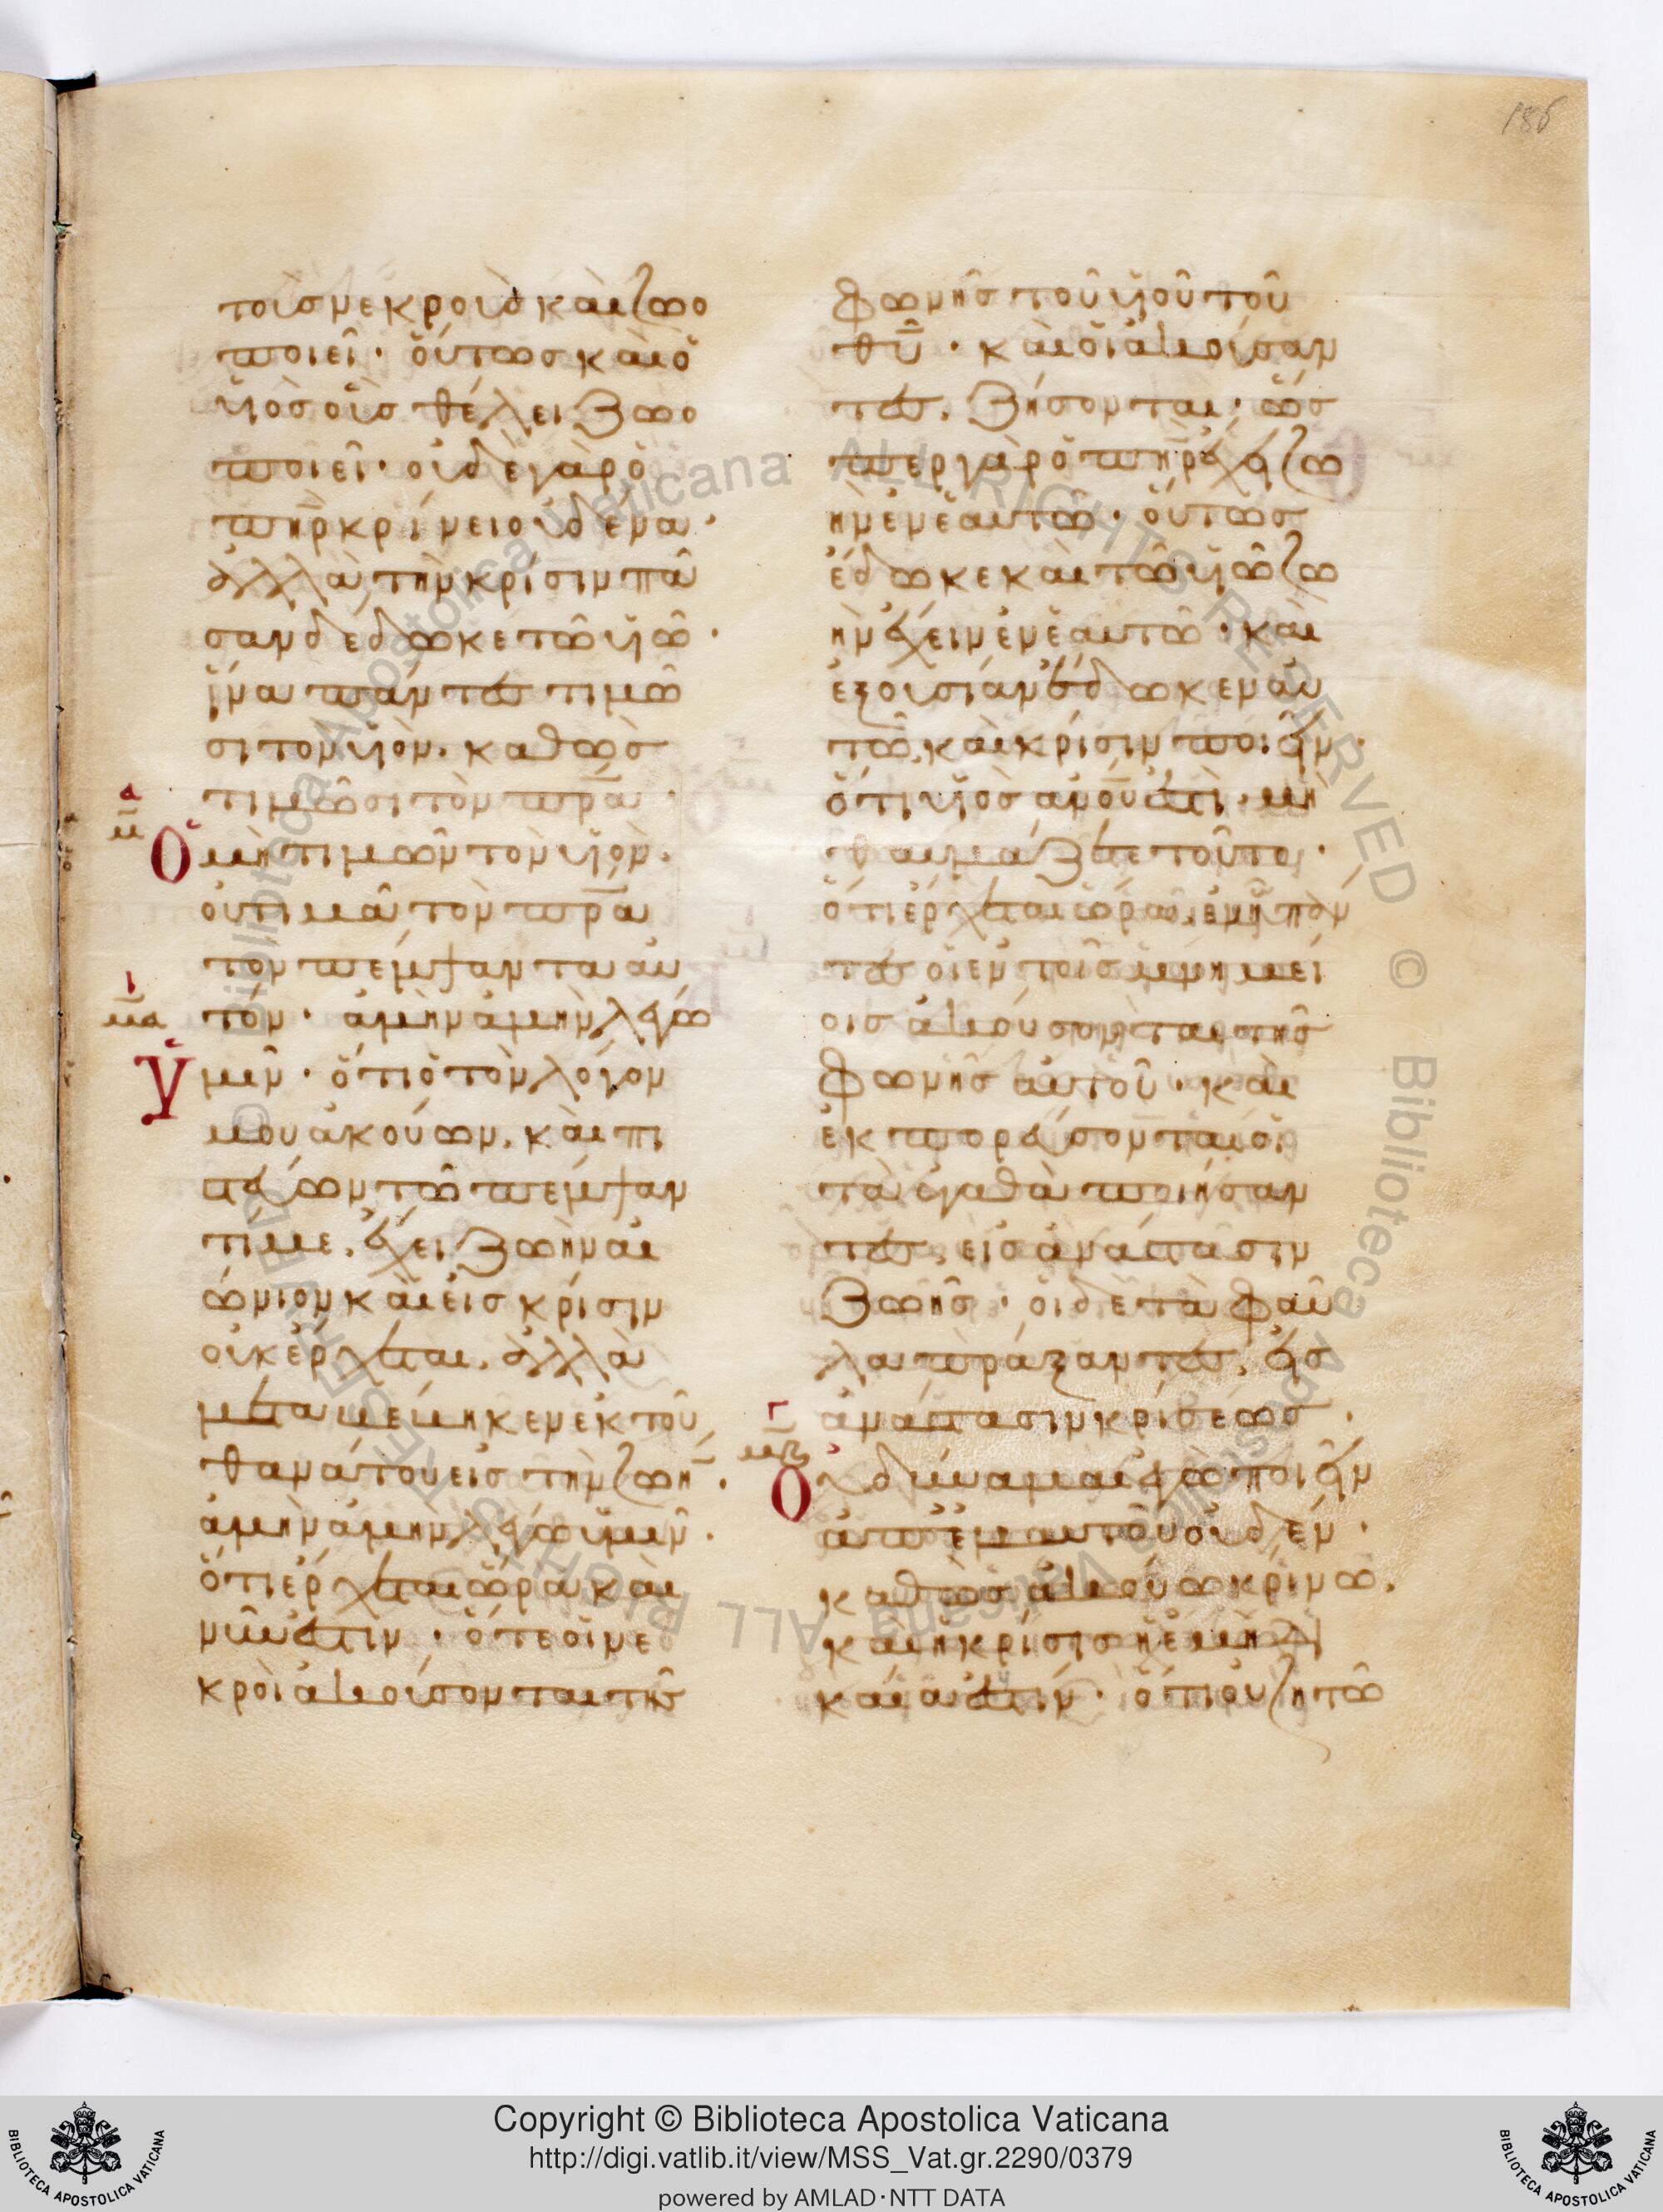 186
τοὺσ νεκροὺσ καὶ ζωο
ποιεῖ· οὕτωσ καὶ ὁ
υἱὸσ οὓσ θέλει ζωο
ποιεῖ· οὐδὲ γὰρ ὁ
πηρ κρίνει οὐδένα·
ἀλλὰ τὴν κρίσιν πᾶ
σαν δέδωκε τῶ υἱῶ·
ἵνα πάντεσ τιμῶ
σι τον υἱόν· καθὼσ
τιμῶσι τὸν πρα·
α
μ
Ὁ μὴ τιμῶν τὸν υἱὸν·
οὐ τιμᾶ τὸν πρα
τον πέμψαντα αὐ
ι
μα
τόν· ἀμὴν ἀμὴν λέγω
Ὑμῖν· ὅτι ὁ τὸν λόγον
μου ἀκούων, καὶ πι
στεύων τῶ πέμψαν
τί με, ἔχει ζωὴν αἰ
ώνιον καὶ εἰσ κρίσιν
οὐκ ἔρχεται, ἀλλὰ
μεταβέβηκεν ἐκ τοῦ
θανάτου εἰσ τὴν ζωή·
ἀμὴν ἀμὴν λέγω ὑμῖν·
ὅτι ἔρχεται ὥρα καὶ
νῦν ἐστιν· ὅτε οἱ νε
κροὶ ἀκούσονται τῆσ
φωνῆσ τοῦ υἱοῦ τοῦ
θυ· καὶ οἱ ἀκούσαν
τεσ, ζήσονται· ὥσ
περ γὰρ ὁ πηρ ἔχει ζω
ὴν ἐν ἑαυτῶ· οὕτωσ
ἔδωκε καὶ τῶ υἱῶ ζω
ὴν ἔχειν ἐν ἑαυτῶ· καὶ
ἐξουσίαν ἔδωκεν αὐ
τῶ, καὶ κρίσιν ποιεῖν·
ὅτι υἱὸσ ανου ἐστὶ· μὴ
θαυμάζετε τοῦτο·
ὅτι ἔρχεται ὥρα ἐν ἧ πάν
τεσ οἱ ἐν τοῖσ μνημεί
οισ ἀκούσονται τῆσ
φωνῆσ αὐτοῦ· καὶ
ἐκπορεύσονται οἱ
τὰ ἀγαθὰ ποιήσαν
τεσ, εἰσ ἀνάστασιν
ζωῆσ· οἱ δὲ τὰ φαῦ
λα πράξαντεσ, εἰσ
ἀνάστασιν κρίσεωσ·
γ
μβ
Οὐ δύναμαι ἐγὼ ποιεῖν
ἀπ' ἐμαυτοῦ οὐδέν·
καθὼσ ἀκούω κρίνω,
καὶ ἡ κρίσισ ἡ ἐμὴ δι
καία ἐστίν· ὅτι οὐ ζητῶ
Copyright © Biblioteca Apostolica Vaticana
http://digi.vatlib.it/view/MSS_Vat.gr.2290/0379
powered by AMLAD·NTT DATA
BIBLIOTECA APOSTOLICA VATICANA
BIBLIOTECA APOSTOLICA VATICANA